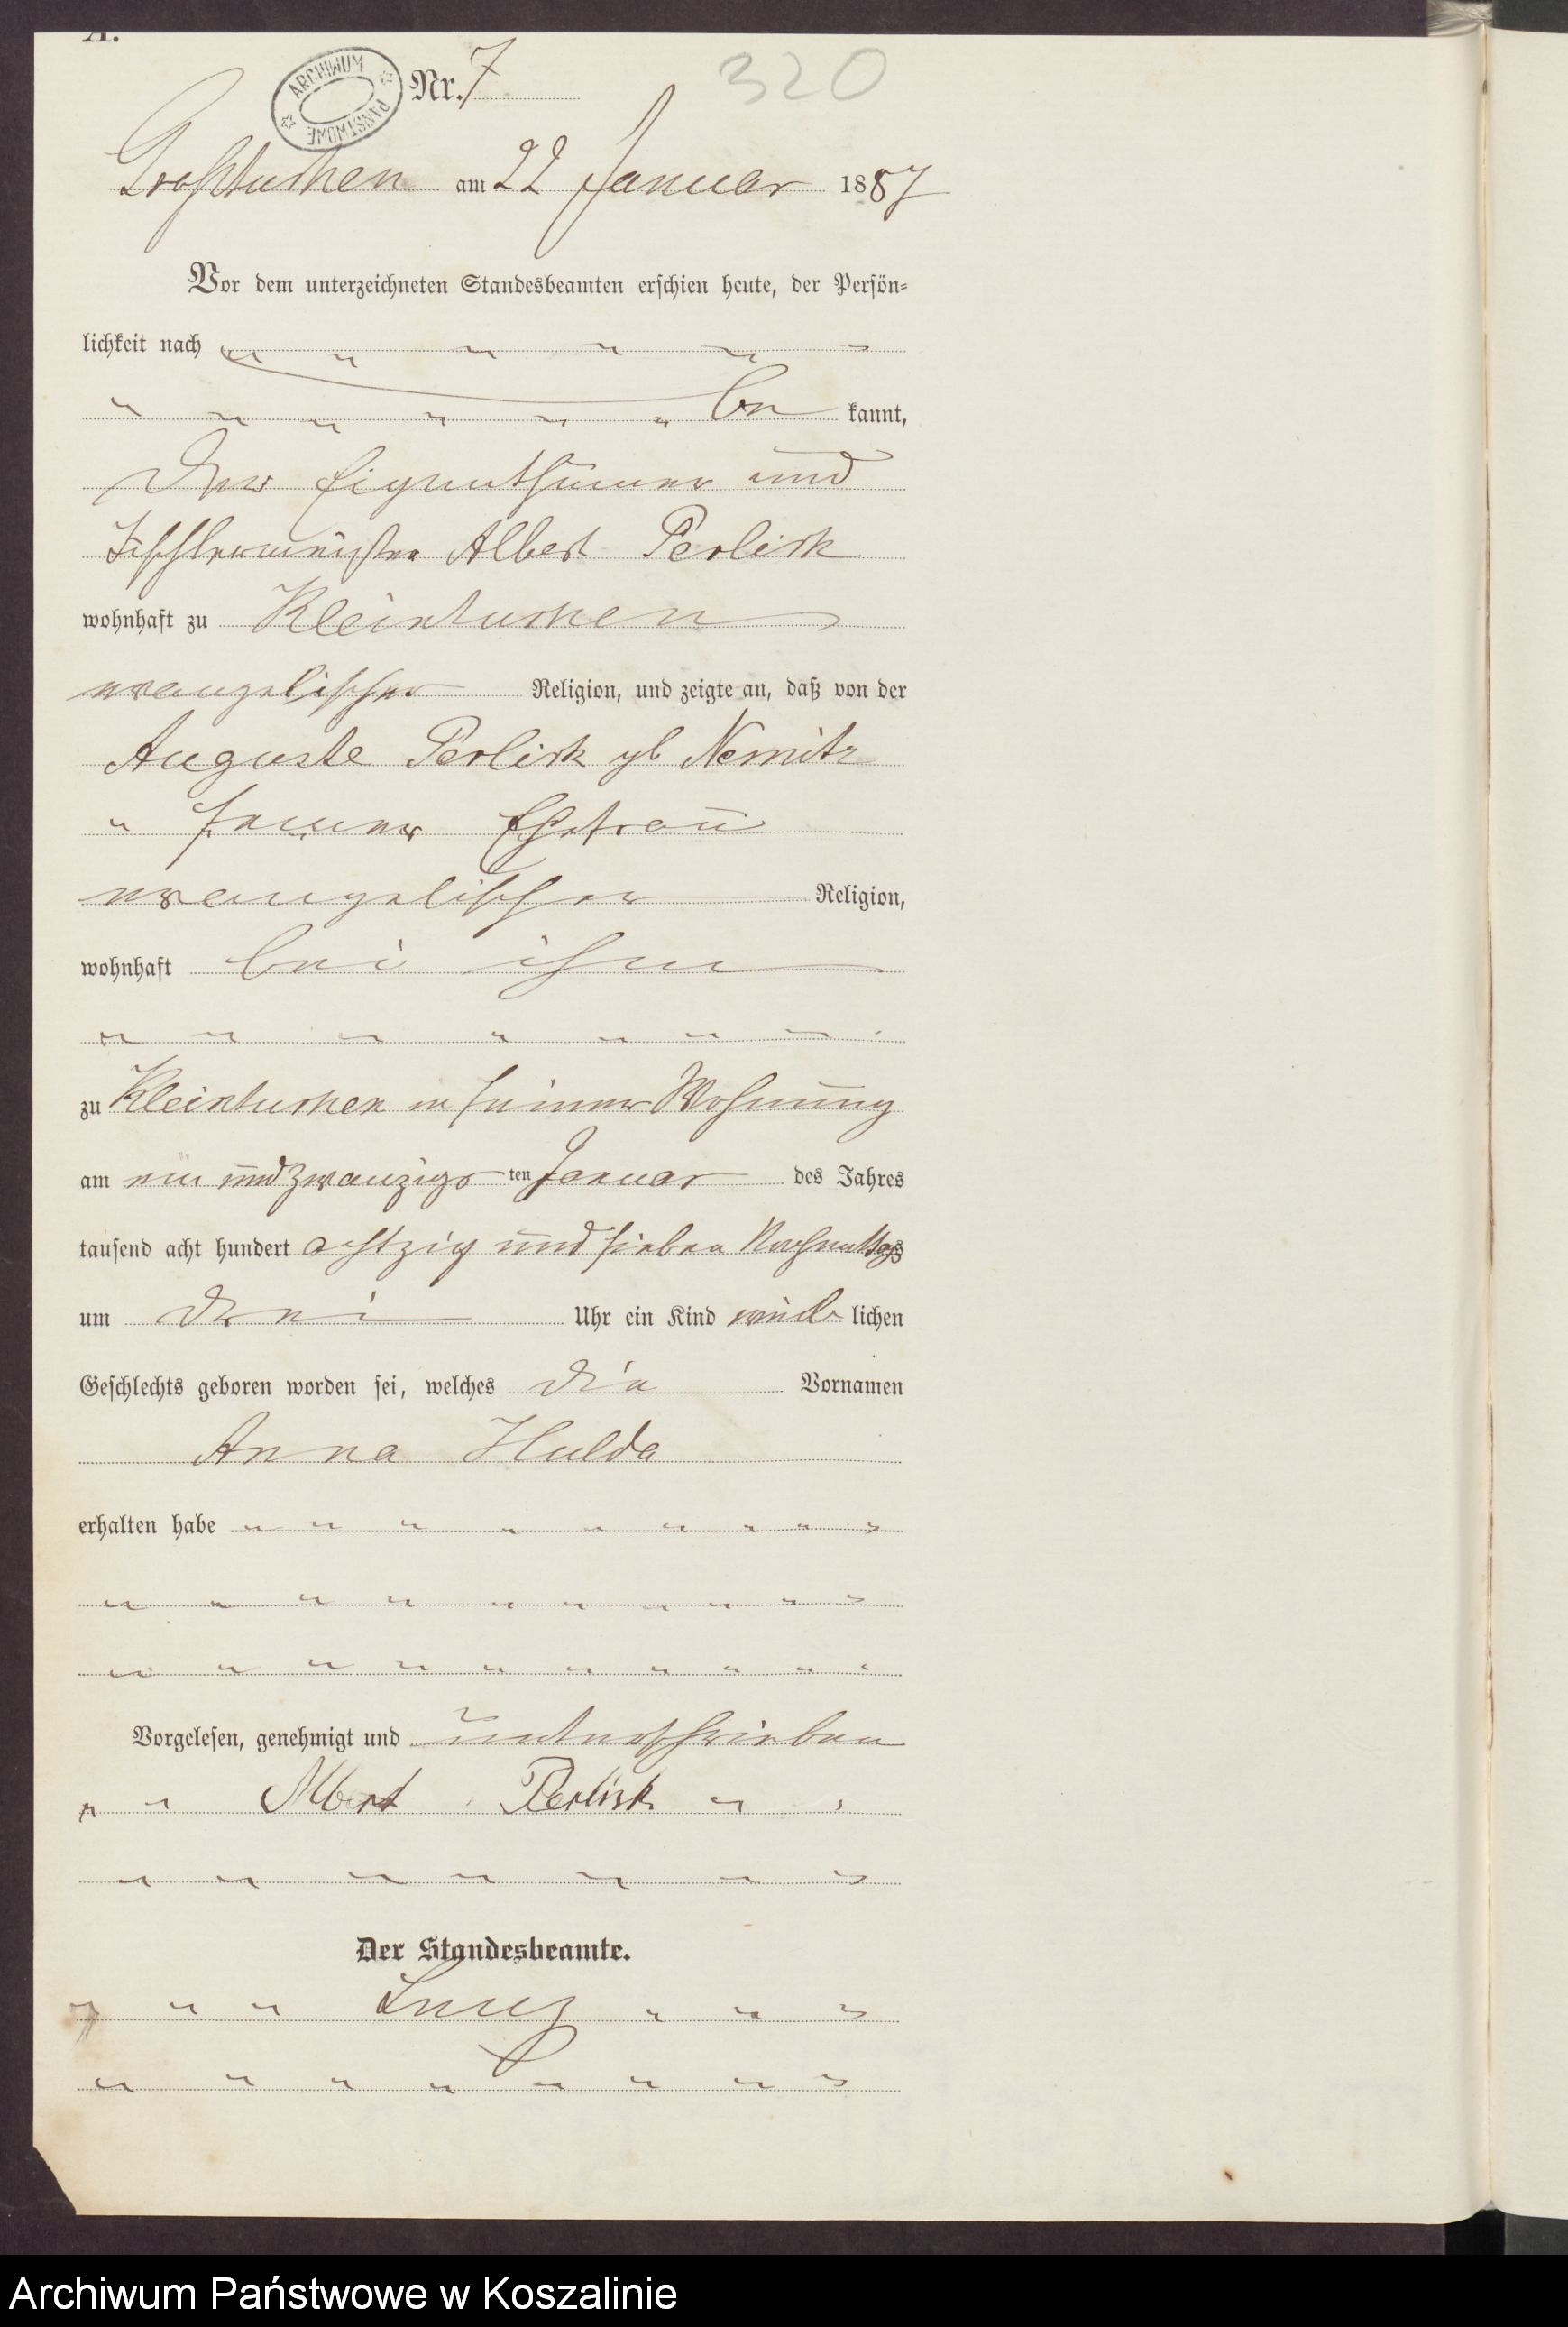 A.
ARCHIWUM PAŃSTWOWE
Nr. 7
320
Großtuchen am 22 Januar 1887
Vor dem unterzeichneten Standesbeamten erschien heute, der Persön-
lichkeit nach
be kannt,
der Eigenthümer und
Tischlermeister Albert Perlick
wohnhaft zu Kleintuchen
evangelischer Religion, und zeigte an, daß von der
Auguste Perlick gb Nemitz
seiner Ehefrau
evangelischer Religion,
wohnhaft bei ihm
zu Kleintuchen in seiner Wohnung
am ein und zwanzigs ten Januar des Jahres
tausend acht hundert achtzig und sieben Nachmittags
um drei Uhr ein Kind weib lichen
Geschlechts geboren worden sei, welches die Vornamen
Anna Hulda
erhalten habe
Vorgelesen, genehmigt und unterschrieben
Albert Perlick
Der Standesbeamte.
Archiwum Państwowe w Koszalinie